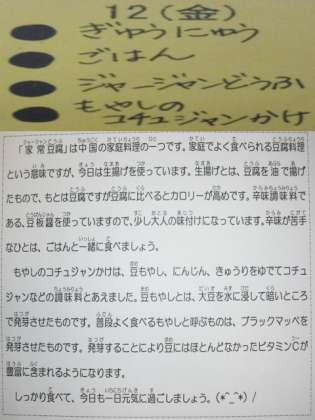 12(金)
ぎゅうにゅう
ごはん
ジャージャンどうふ
もやしの
コチュジャンかけ
「家常豆腐」は中国の家庭料理の一つです。家庭でよく食べられる豆腐料理
という意味ですが、今日は生揚げを使っています。生揚げとは、豆腐を油で揚げ
たもので、もとは豆腐ですが豆腐に比べるとカロリーが高めです。辛味調味料で
ある、豆板醤を使っていますので、少し大人の味付けになっています。辛味が苦手
なひとは、ごはんと一緒に食べましょう。
もやしのコチュジャンかけは、豆もやし、にんじん、きゅうりをゆでてコチュ
ジャンなどの調味料とあえました。豆もやしとは、大豆を水に浸して暗いところ
で発芽させたものです。普段よく食べるもやしと呼ぶものは、ブラックマッペを
発芽させたものです。発芽することにより豆にはほとんどなかったビタミンCが
豊富に含まれるようになります。
しっかり食べて、今日も一日元気に過ごしましょう。(*^_^*)/